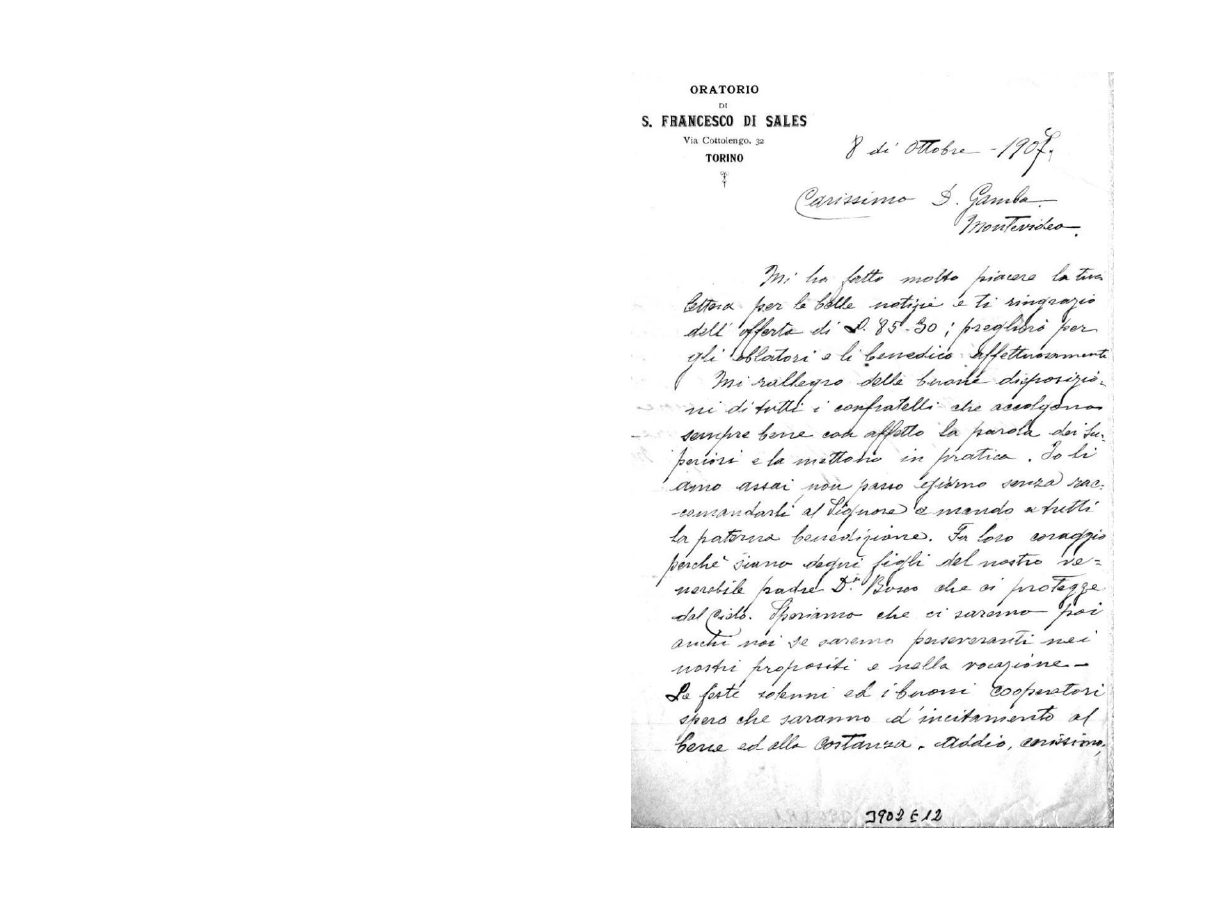 ORATORIO
DI
S. FRANCESCO DI SALES
Via Cottolengo, 32
TORINO
8 di Ottobre - 1907,
Carissimo D. Gamba
Montevideo.
Mi ha fatto molto piacere la tua
lettera per le belle notizie e ti ringrazio
dell'offerta di 85-30; pregherò per
gli oblatori e li benedico affettuosamente
Mi rallegro delle buone disposizio-
ni di tutti i confratelli che accolgono
sempre bene con affetto la parola dei Su-
periori e la mettono in pratica. Io li
amo assai, non passo giorno senza rac-
comandarli al Signore e mando a tutti
la paterna benedizione. Fa loro coraggio
perchè siano degni figli del nostro ve=
nerabile padre Dn Bosco che ci protegge
dal Cielo. Speriamo che ci saremo poi
anche noi se saremo perseveranti nei
nostri propositi e nella vocazione -
Le feste solenni ed i buoni cooperatori
spero che saranno d'incitamento al
bene ed alla costanza. Addio, carissimo,
3902 E 12